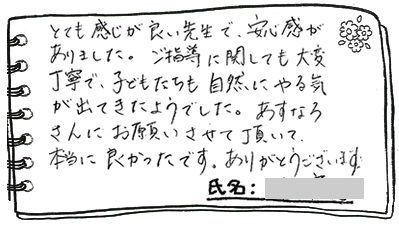 とても感じが良い先生で、安心感が
ありました。ご指導に関しても大変
丁寧で、子どもたちも自然にやる気
が出てきたようでした。あすなろ
さんにお願いさせて頂いて、
本当に良かったです。ありがとうございます
氏名: